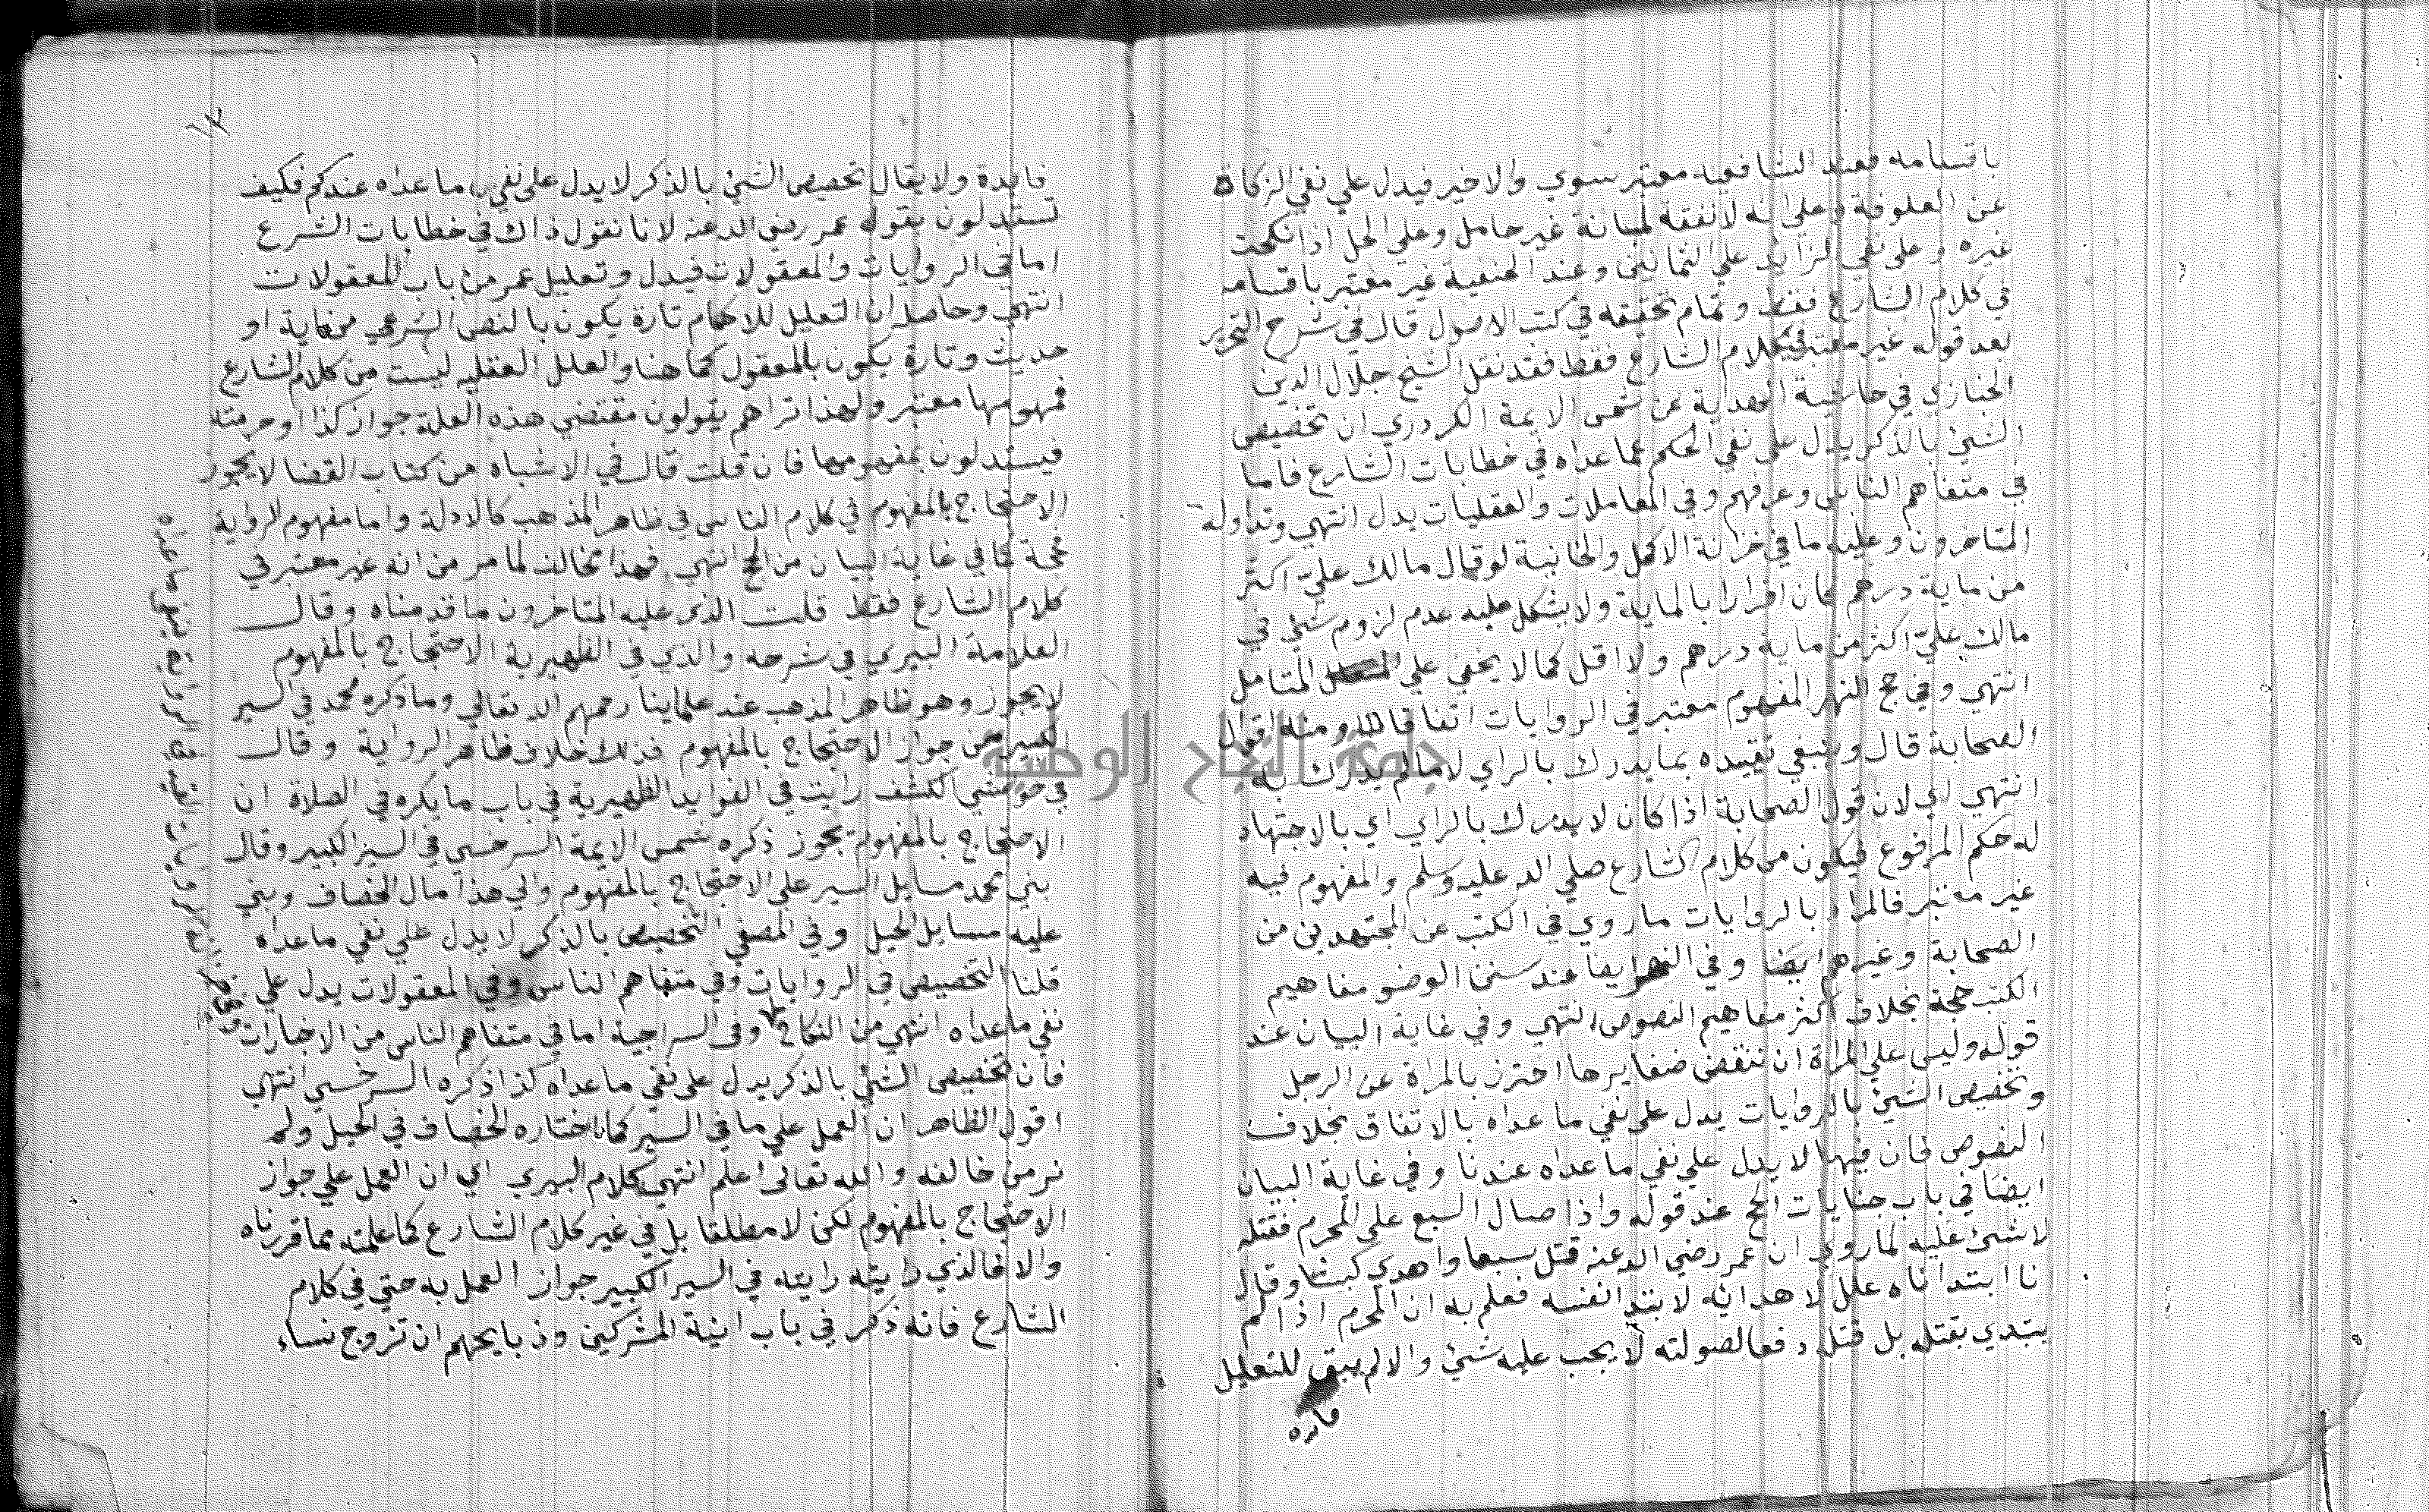 باقسامه فعند الشافعيه معتبر سوي والاخير فيدل علي نفي الزكاة
عن العلوفة وعلي انه لا نفقة لمبانة غير حامل وعلي الحل اذا نكحت
غيره وعلي نفي الزايد علي الثمانين وعند الحنفية غير معتبر باقسامه
في كلام الشارع فقط وتمام تحقيقه في كتب الاصول قال في شرح التحرير
بعد قوله غير معتبر في كلام الشارع فقط فقد نقل الشيخ جلال الدين
الخبازي في حاشية الهداية عن شمس الايمة الكردري ان تخصيص
الشئ بالذكر يدل علي نفي الحكم عما عداه في خطابات الشارع فاما
في متفاهم الناس وعرفهم وفي المعاملات والعقليات يدل انتهي وتداوله
المتاخرون وعليه ما في خزانة الاكمل والخانية لو قال مالك علي اكثر
من ماية درهم كان اقرارا بالماية ولا يشكل عليه عدم لزوم شئ في
مالك علي اكثر من ماية درهم ولا اقل كما لا يخفي علي المتامل
انتهي وفي حج النهر المفهوم معتبر في الروايات اتفاقا ومنه اقوال
الصحابة قال وينبغي تقييده بما يدرك بالراي لا مالم يدرك به
انتهي اي لان قول الصحابة اذا كان لا يدرك بالراي اي بالاجتهاد
له حكم المرفوع فيكون من كلام الشارع صلي الله عليه وسلم والمفهوم فيه
غير معتبر فالمراد بالروايات ما روي في الكتب عن المجتهدين من
الصحابة وغيرهم ايضا وفي النهر ايضا عند سنن الوضو مفاهيم
الكتب حجة بخلاف اكثر مفاهيم النصوص انتهي وفي غاية البيان عند
قوله وليس علي المراة ان تنقض ضفايرها احترز بالمراة عن الرجل
وتخصيص الشئ بالروايات يدل علي نفي ما عداه بالاتفاق بخلاف
النصوص فان فيها لا يدل علي نفي ما عداه عندنا وفي غاية البيان
ايضا في باب جنايات الحج عند قوله واذا صال السبع علي المحرم فقتله
لا شئ عليه لما روي ان عمر رضي الله عنه قتل سبعا واهدي كبشا وقال
نا ابتداناه علل لاهدائه لابتدا نفسه فعلم به ان المحرم اذا لم
يبتدي بقتله بل قتله دفعا لصولته لا يجب عليه شئ والا لم يبق للتعليل
فايدة
١٣
فايدة ولا يقال تخصيص الشئ بالذكر لا يدل علي نفي ما عداه عندكم فكيف
تستدلون بقوله عمر رضي الله عنه لانا نقول ذاك في خطابات الشرع
اما في الروايات والمعقولات فيدل وتعليل عمر من باب المعقولات
انتهي وحاصله ان التعليل للاحكام تارة يكون بالنص الشرعي من اية او
حديث وتارة يكون بالمعقول كما هنا والعلل العقليه ليست من كلام الشارع
فمهومها معتبر ولهذا تراهم يقولون مقتضي هذه العلة جواز كذا او حرمته
فيستدلون بمفهومها فان قلت قال في الاشباه من كتاب القضا لا يجوز
الاحتجاج بالمفهوم في كلام الناس في ظاهر المذهب كالادلة واما مفهوم الرواية
فحجة كما في غاية البيان من الحج انتهي فهذا مخالف لما مر من انه غير معتبر في
كلام الشارع فقط قلت الذي عليه المتاخرون ما قدمناه وقال
العلامة البيري في شرحه والذي في الظهيرية الاحتجاج بالمفهوم
لا يجوز وهو ظاهر المذهب عند علماينا رحمهم الله تعالي وما ذكره محمد في السير
الكبير من جواز الاحتجاج بالمفهوم فذلك خلاف ظاهر الرواية وقال
في حواشي الكشف رايت في الفوايد الظهيرية في باب ما يكره في الصلاة ان
الاحتجاج بالمفهوم يجوز ذكره شمس الايمة السرخسي في السير الكبير وقال
بني محمد مسايل السير علي الاحتجاج بالمفهوم والي هذا مال الخصاف وبني
عليه مسايل الحيل وفي المصفي التخصيص بالذكر لا يدل علي نفي ما عداه
قلنا التخصيص في الروايات وفي متفاهم الناس وفي المعقولات يدل علي
نفي ما عداه انتهي من النكاح وفي السراجية اما في متفاهم الناس من الاخبارات
فان تخصيص الشئ بالذكر يدل علي نفي ما عداه كذا ذكره السرخسي انتهي
اقول الظاهر ان العمل علي ما في السير كما اختاره الخصاف في الحيل ولم
نر من خالفه والله تعالي اعلم انتهي كلام البيري اي ان العمل علي جواز
الاحتجاج بالمفهوم لكن لا مطلقا بل في غير كلام الشارع كما علمته مما قررناه
والا فالذي رايته رايته في السير الكبير جواز العمل به حتي في كلام
الشارع فانه ذكر في باب انية المشركين وذبايحهم ان تزوج نساء
جامعة النجاح الوطنية